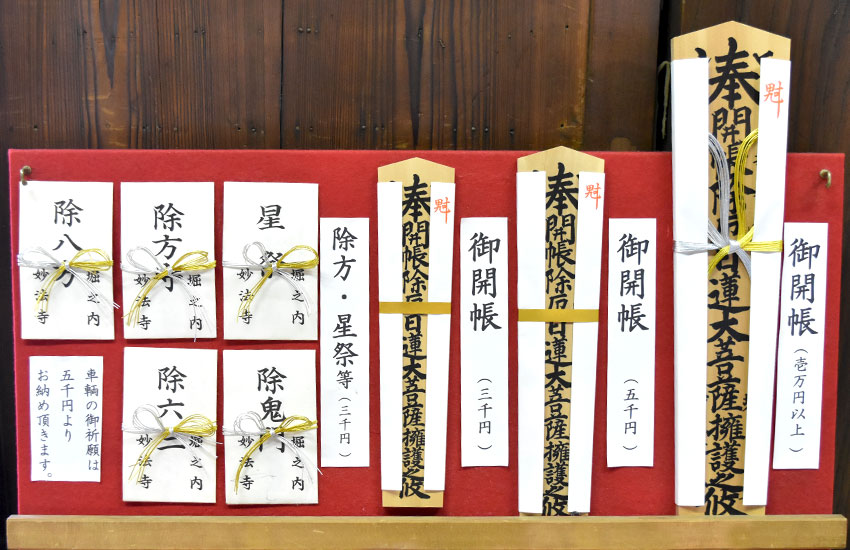 御開帳（壱万円以上）
奉開帳除厄日蓮大菩薩擁護之攸
御開帳（五千円）
奉開帳除厄日蓮大菩薩擁護之攸
御開帳（三千円）
奉開帳除厄日蓮大菩薩擁護之攸
除方・星祭等（三千円）
星祭
堀之内
妙法寺
除方
堀之内
妙法寺
除八方
堀之内
妙法寺
除鬼門
堀之内
妙法寺
除六三
堀之内
妙法寺
車輌の御祈願は
五千円より
お納め頂きます。